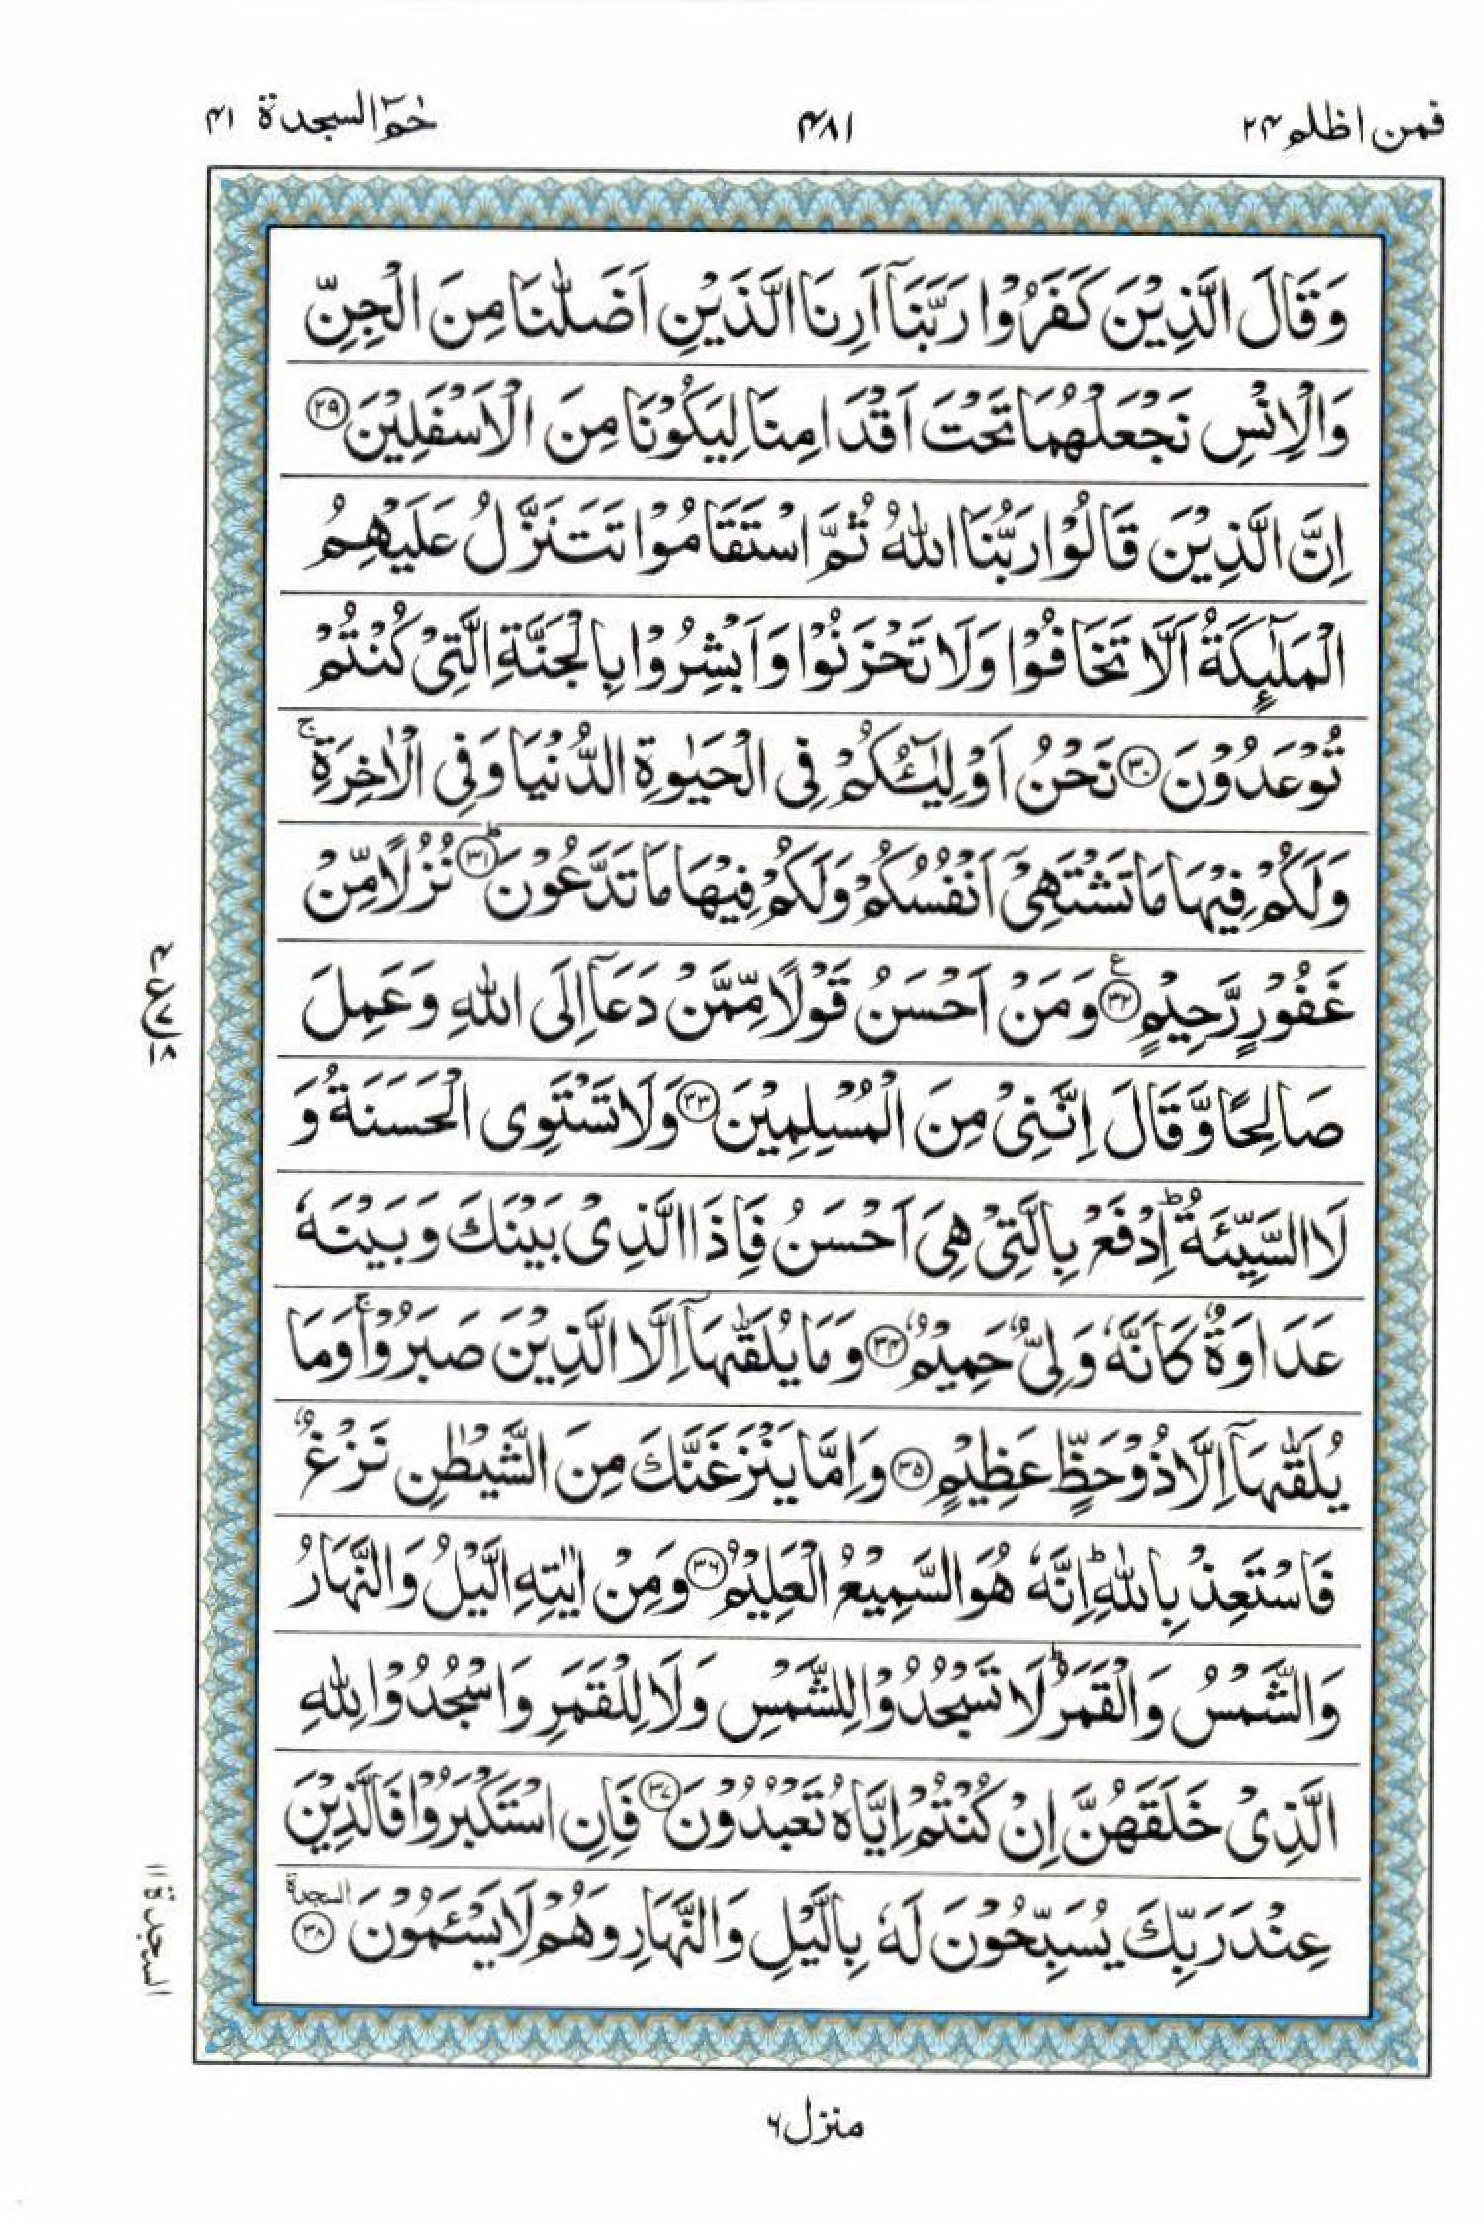 فمن اظلم ۲۴
۴۸۱
حٰمٓ السجدة ۴۱
وَقَالَ الَّذِيْنَ كَفَرُوْا رَبَّنَآ اَرِنَا الَّذَيْنِ اَضَلّٰنَا مِنَ الْجِنِّ
وَالْاِنْسِ نَجْعَلْهُمَا تَحْتَ اَقْدَامِنَا لِيَكُوْنَا مِنَ الْاَسْفَلِيْنَ ۲۹
اِنَّ الَّذِيْنَ قَالُوْا رَبُّنَا اللّٰهُ ثُمَّ اسْتَقَامُوْا تَتَنَزَّلُ عَلَيْهِمُ
الْمَلٰٓئِكَةُ اَلَّا تَخَافُوْا وَلَا تَحْزَنُوْا وَاَبْشِرُوْا بِالْجَنَّةِ الَّتِيْ كُنْتُمْ
تُوْعَدُوْنَ ۳۰ نَحْنُ اَوْلِيٰٓؤُكُمْ فِي الْحَيٰوةِ الدُّنْيَا وَفِي الْاٰخِرَةِ ۚ
وَلَكُمْ فِيْهَا مَا تَشْتَهِيْٓ اَنْفُسُكُمْ وَلَكُمْ فِيْهَا مَا تَدَّعُوْنَ ۳۱ؕ نُزُلًا مِّنْ
غَفُوْرٍ رَّحِيْمٍ ۳۲ۧ وَمَنْ اَحْسَنُ قَوْلًا مِّمَّنْ دَعَآ اِلَى اللّٰهِ وَعَمِلَ
صَالِحًا وَّقَالَ اِنَّنِيْ مِنَ الْمُسْلِمِيْنَ ۳۳ وَلَا تَسْتَوِي الْحَسَنَةُ وَ
لَا السَّيِّئَةُ ؕ اِدْفَعْ بِالَّتِيْ هِيَ اَحْسَنُ فَاِذَا الَّذِيْ بَيْنَكَ وَبَيْنَهٗ
عَدَاوَةٌ كَاَنَّهٗ وَلِيٌّ حَمِيْمٌ ۳۴ وَمَا يُلَقّٰىهَآ اِلَّا الَّذِيْنَ صَبَرُوْا ۚ وَمَا
يُلَقّٰىهَآ اِلَّا ذُوْ حَظٍّ عَظِيْمٍ ۳۵ وَاِمَّا يَنْزَغَنَّكَ مِنَ الشَّيْطٰنِ نَزْغٌ
فَاسْتَعِذْ بِاللّٰهِ ؕ اِنَّهٗ هُوَ السَّمِيْعُ الْعَلِيْمُ ۳۶ وَمِنْ اٰيٰتِهِ الَّيْلُ وَالنَّهَارُ
وَالشَّمْسُ وَالْقَمَرُ ؕ لَا تَسْجُدُوْا لِلشَّمْسِ وَلَا لِلْقَمَرِ وَاسْجُدُوْا لِلّٰهِ
الَّذِيْ خَلَقَهُنَّ اِنْ كُنْتُمْ اِيَّاهُ تَعْبُدُوْنَ ۳۷ فَاِنِ اسْتَكْبَرُوْا فَالَّذِيْنَ
عِنْدَ رَبِّكَ يُسَبِّحُوْنَ لَهٗ بِالَّيْلِ وَالنَّهَارِ وَهُمْ لَا يَسْـَٔمُوْنَ ۳۸ السجدة
السجدة ۱۱
منزل ۶